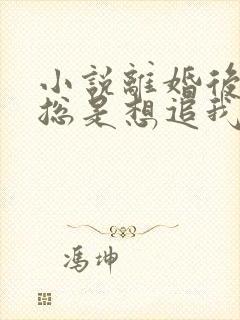 小說離婚後
總是想追我
馮坤